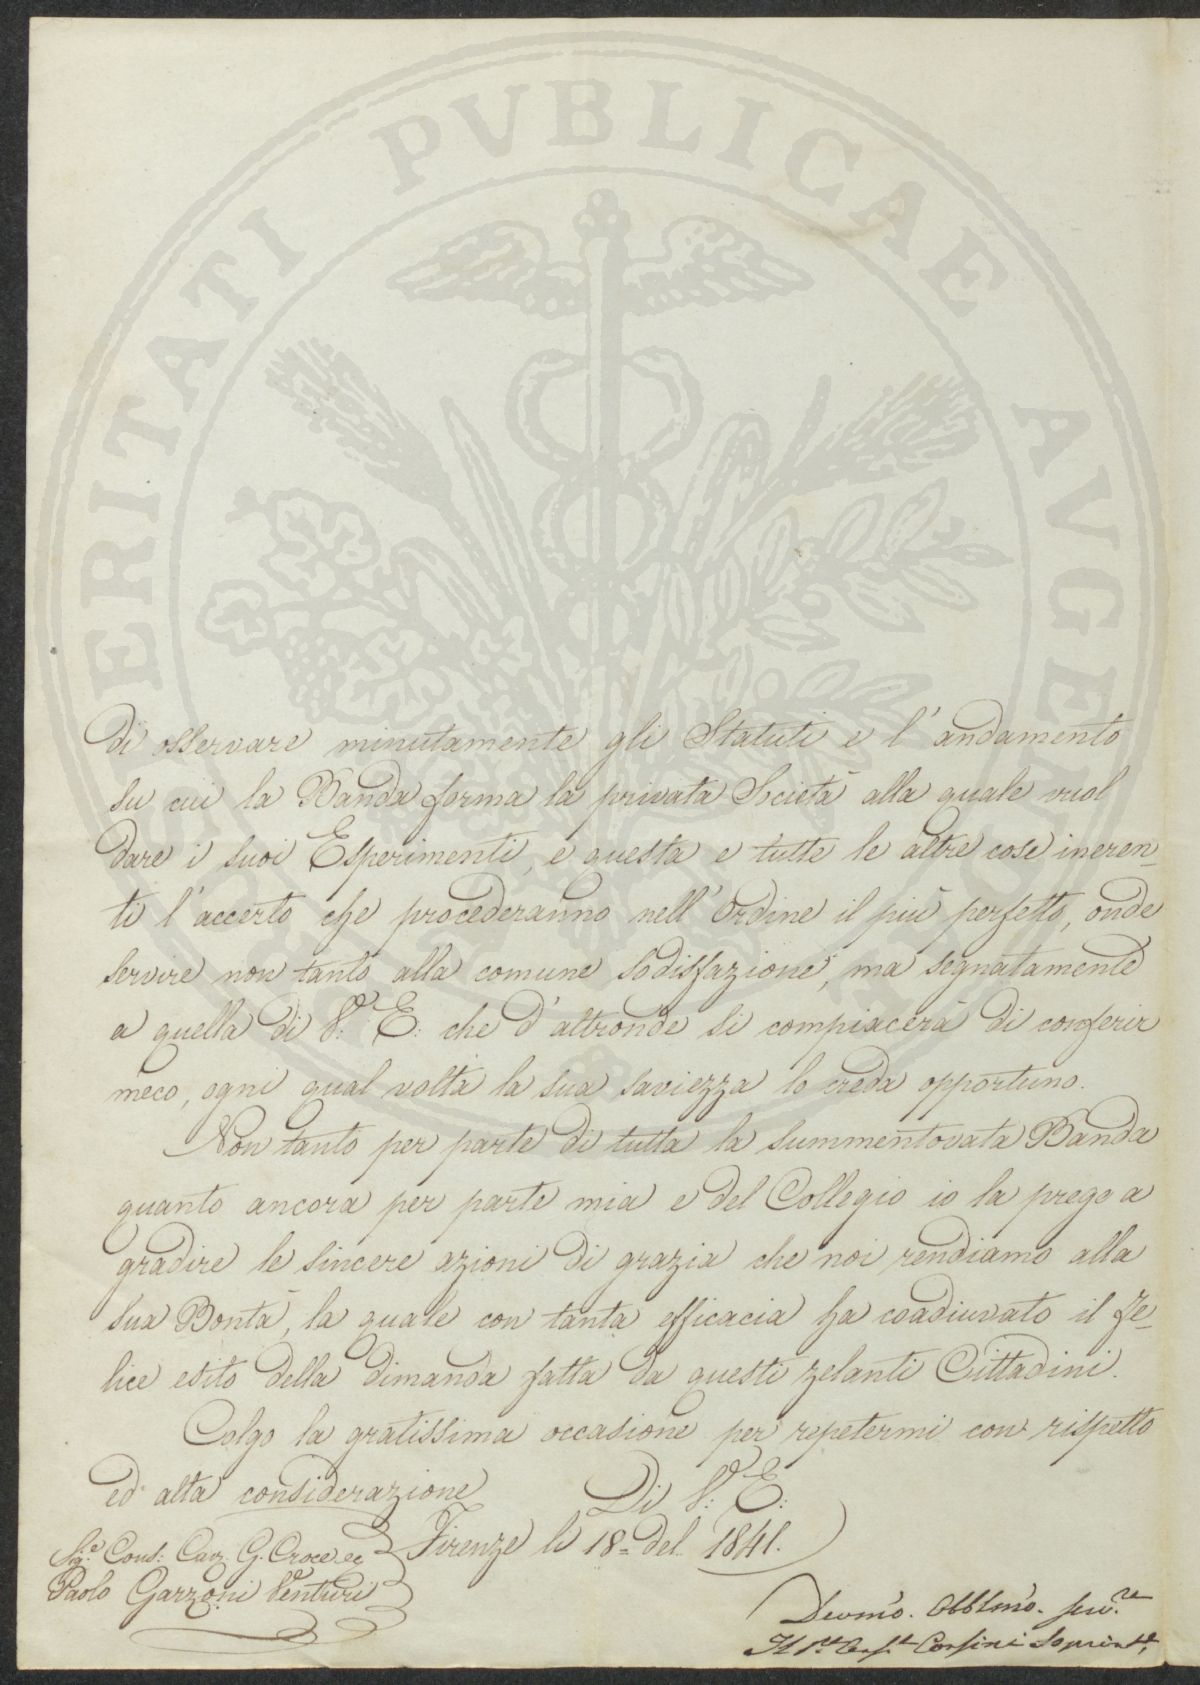 PROSPERITATI PVBLICAE AVGENDAE
di osservare minutamente gli Statuti e l'andamento
su cui la Banda forma la privata Società alla quale vuol
dare i suoi Esperimenti, e questa e tutte le altre cose ineren-
ti l'accerto che procederanno nell'Ordine il più perfetto, onde
servire non tanto alla comune sodisfazione, ma segnatamente
a quella di V: E: che d'altronde si compiacerà di conferir
meco, ogni qual volta la sua saviezza lo creda opportuno.
Non tanto per parte di tutta la summentovata Banda
quanto ancora per parte mia e del Collegio io la prego a
gradire le sincere azioni di grazia che noi rendiamo alla
sua Bontà, la quale con tanta efficacia ha coadiuvato il fe-
lice esito della dimanda fatta da questi zelanti Cittadini.
Colgo la gratissima occasione per repetermi con rispetto
ed alta considerazione
Di V: E:
Firenze li 18= del 1841.
Sig.e Cons: Cav. G. Croce ec
Paolo Garzoni Venturi
Devmo. Obblmo. serv.re
Corsini